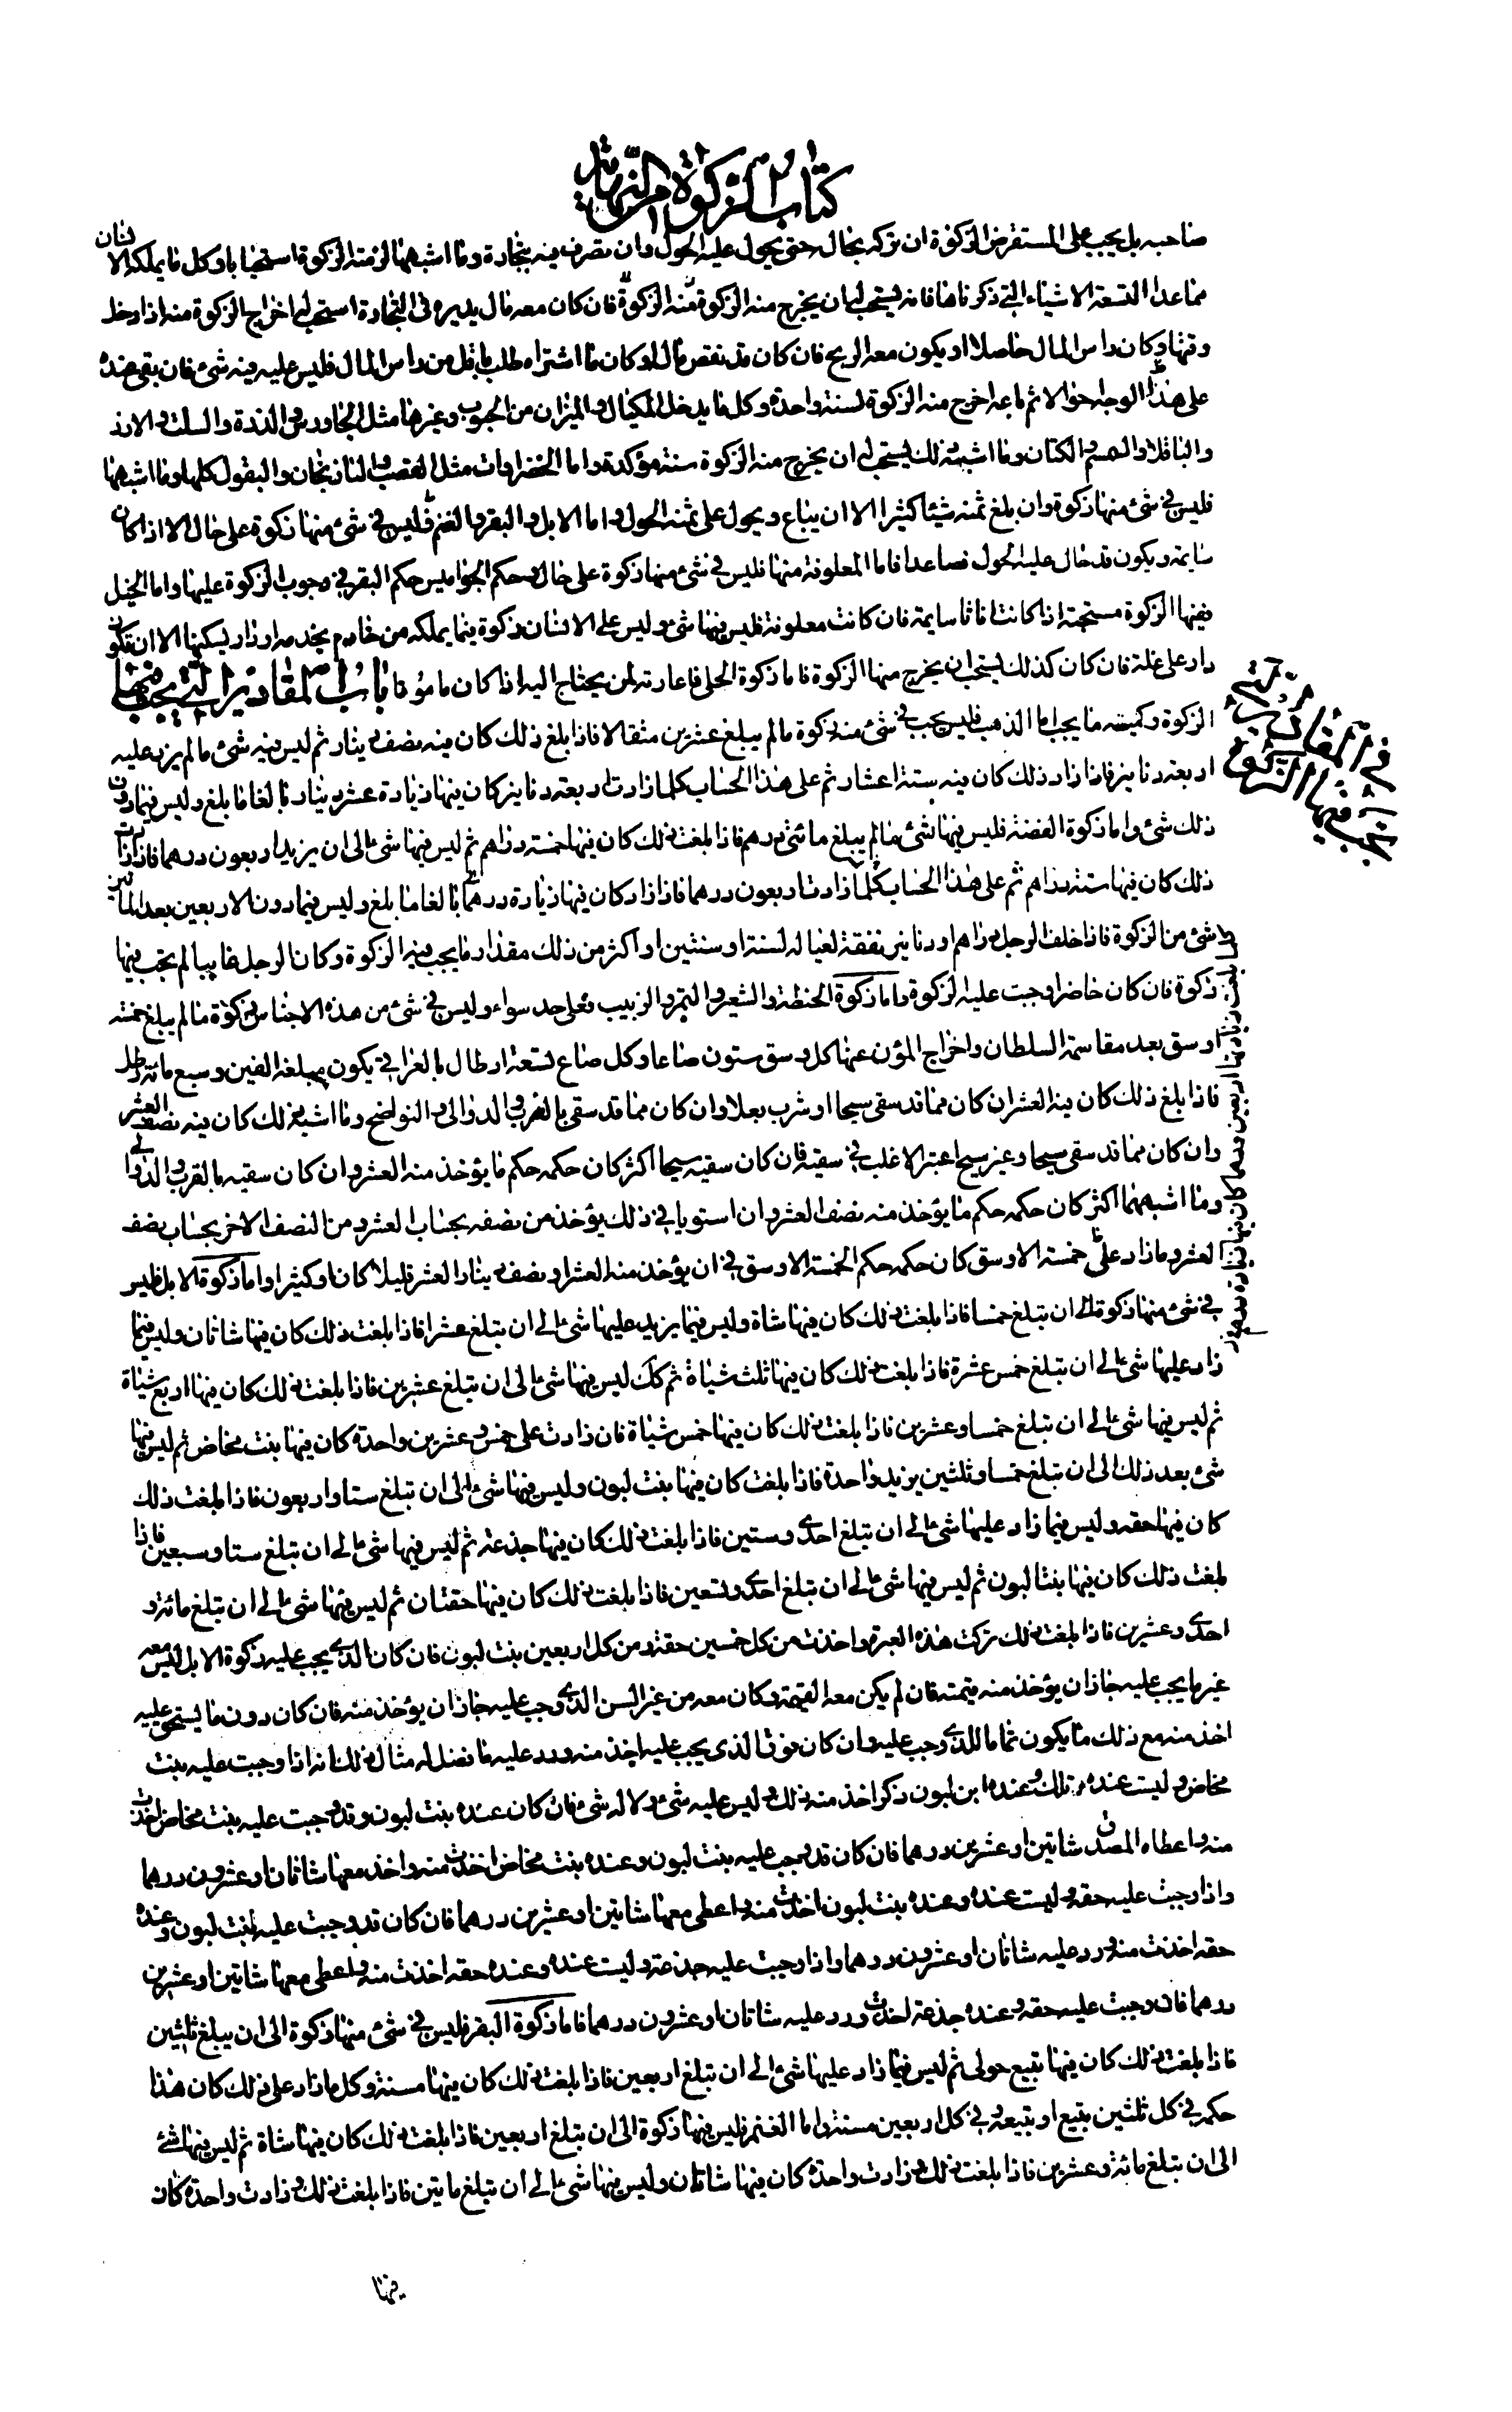 كتاب الزكوة من النهاية
صاحبه بل يجب على المستقرض الزكوة ان تركه بحاله حتى يحول عليه الحول وان تصرف فيه بتجارة وما اشبهها لزمته الزكوة استحبابا وكل ما يملكه الانسان
مما عدا التسعة الاشياء التي ذكرناها فانه يستحب له ان يخرج منه الزكوة فان كان معه مال يديره في التجارة استحب له اخراج الزكوة منه اذا دخل
وقتها وكان راس المال حاصلا او يكون معه الربح فان كان قد نقص ماله او كان ما اشتراه طلب باقل من راس المال فليس عليه فيه شئ فان بقى عنده
على هذا الوجه احوالا ثم باعه اخرج منه الزكوة لسنة واحدة وكل ما يدخل المكيال والميزان من الحبوب وغيرها مثل الجاورس والذرة والسلت والارز
والباقلا والسمسم والكتان وما اشبه ذلك يستحب له ان يخرج منه الزكوة سنة مؤكدة واما الخضراوات مثل القصب والباذنجان والبقول كلها وما اشبهها
فليس في شئ منها زكوة وان بلغ ثمنه شيئا كثيرا الا ان يباع ويحول على ثمنه الحول واما الابل والبقر والغنم فليس في شئ منها زكوة على حال الا اذا كان
سايمة ويكون قد حال عليه الحول فصاعدا فاما المعلوفة منها فليس في شئ منها زكوة على حال وحكم الجواميس حكم البقر في وجوب الزكوة عليها واما الخيل
ففيها الزكوة مستحبة اذا كانت اناثا سايمة فان كانت معلوفة فليس فيها شئ وليس على الانسان زكوة فيما يملكه من خادم يخدمه او دار يسكنها الا ان تكون
دار على غلة فان كان كذلك يستحب ان يخرج منها الزكوة فاما زكوة الحلى فاعارته لمن يحتاج اليه اذا كان مامونا باب المقادير التي يجب فيها
الزكوة وكميته ما يجب اما الذهب فليس يجب في شئ منه زكوة ما لم يبلغ عشرين مثقالا فاذا بلغ ذلك كان فيه نصف دينار ثم ليس فيه شئ ما لم يزد عليه
اربعة دنانير فاذا زاد ذلك كان فيه ستة اعشار ثم على هذا الحساب كلما زادت اربعة دنانير كان فيها زيادة عشر دينار بالغا ما بلغ وليس فيما دون
ذلك شئ واما زكوة الفضة فليس فيها شئ ما لم يبلغ مائتى درهم فاذا بلغت ذلك كان فيها خمسة دراهم ثم ليس فيها شئ الى ان يزيد اربعون درهما فاذا زادت
ذلك كان فيها ستة دراهم ثم على هذا الحساب كلما زادت اربعون درهما فاذا زاد كان فيها زيادة درهم بالغا ما بلغ وليس فيما دون الاربعين بعد المائتين
شئ من الزكوة فاذا خلف الرجل دراهم او دنانير نفقة لعياله لسنة او سنتين او اكثر من ذلك مقدار ما يجب فيه الزكوة وكان الرجل غايبا لم يجب فيها
زكوة فان كان حاضرا وجبت عليه الزكوة واما زكوة الحنطة والشعير والتمر والزبيب فعلى حد سواء وليس في شئ من هذه الاجناس زكوة ما لم يبلغ خمسة
اوسق بعد مقاسمة السلطان واخراج المؤن عنها كل وسق ستون صاعا وكل صاع تسعة ارطال بالعراقي يكون مبلغه الفين وسبع مائة رطل
فاذا بلغ ذلك كان فيه العشر ان كان مما قد سقى سيحا او شرب بعلا وان كان مما قد سقى بالغرب والدوالى والنواضح وما اشبه ذلك كان فيه نصف العشر
وان كان مما قد سقى سيحا وغير سيح اعتبر الاغلب في سقيه فان كان سقيه سيحا اكثر كان حكمه حكم ما يؤخذ منه العشر وان كان سقيه بالغرب والدوالي
وما اشبههما اكثر كان حكمه حكم ما يؤخذ منه نصف العشر وان استويا في ذلك يؤخذ من نصفه بحساب العشر ومن النصف الاخر بحساب نصف
العشر وما زاد على خمسة الاوسق كان حكمه حكم الخمسة الاوسق في ان يؤخذ منه العشر او نصف العشر قليلا كان او كثيرا واما زكوة الابل فليس
في شئ منها زكوة الى ان تبلغ خمسا فاذا بلغت ذلك كان فيها شاة وليس فيما يزيد عليها شئ الى ان تبلغ عشرا فاذا بلغت ذلك كان فيها شاتان وليس فيما
زاد عليها شئ الى ان تبلغ خمس عشرة فاذا بلغت ذلك كان فيها ثلث شياة ثم كك ليس فيها شئ الى ان تبلغ عشرين فاذا بلغت ذلك كان فيها اربع شياة
ثم ليس فيها شئ الى ان تبلغ خمسا وعشرين فاذا بلغت ذلك كان فيها خمس شياة فان زادت على خمس وعشرين واحدة كان فيها بنت مخاض ثم ليس فيها
شئ بعد ذلك الى ان تبلغ خمسا وثلثين يزيد واحدة فاذا بلغت كان فيها بنت لبون وليس فيها شئ الى ان تبلغ ستا واربعون فاذا بلغت ذلك
كان فيها حقه وليس فيما زاد عليها شئ الى ان تبلغ احدى وستين فاذا بلغت ذلك كان فيها جذعة ثم ليس فيها شئ الى ان تبلغ ستا وسبعين فاذا
بلغت ذلك كان فيها بنتا لبون ثم ليس فيها شئ الى ان تبلغ احدى وتسعين فاذا بلغت ذلك كان فيها حقتان ثم ليس فيها شئ الى ان تبلغ مائة و
احدى وعشرين فاذا بلغت ذلك تركت هذه العبرة واخذت من كل خمسين حقة ومن كل اربعين بنت لبون فان كان الذي يجب عليه زكوة الابل ليس معه
غير ما يجب عليه جاز ان يؤخذ منه قيمته فان لم يكن معه القيمة وكان معه من غير السن الذي وجب عليه جاز ان يؤخذ منه فان كان دون ما يستحق عليه
اخذ منه مع ذلك ما يكون تماما للذي وجب عليه وان كان فوق الذى يجب عليه اخذ منه ورد عليه ما فضل له مثال ذلك انه اذا وجبت عليه بنت
مخاض وليست عنده وعنده ابن لبون ذكر اخذ منه ذلك وليس عليه شئ ولا له شئ فان كان عنده بنت لبون وقد وجبت عليه بنت مخاض اخذت
منه واعطاه المصدق شاتين او عشرين درهما فان كان قد وجب عليه بنت لبون وعنده بنت مخاض اخذت منه واخذ معها شاتان او عشرون درهما
واذا وجبت عليه حقه وليست عنده وعنده بنت لبون اخذت منه واعطى معها شاتين او عشرين درهما فان كان قد وجبت عليه بنت لبون وعنده
حقه اخذت منه ورد عليه شاتان او عشرون درهما واذا وجبت عليه جذعة وليست عنده وعنده حقه اخذت منه واعطى معها شاتين او عشرين
درهما فان وجبت عليه حقه وعنده جذعة اخذت ورد عليه شاتان او عشرون درهما فاما زكوة البقر فليس في شئ منها زكوة الى ان يبلغ ثلثين
فاذا بلغت ذلك كان فيها تبيع حولى ثم ليس فيما زاد عليها شئ الى ان تبلغ اربعين فاذا بلغت ذلك كان فيها مسنة وكل ما زاد على ذلك كان هذا
حكمه في كل ثلثين تبيع او تبيعة وفي كل اربعين مسنة واما الغنم فليس فيها زكوة الى ان تبلغ اربعين فاذا بلغت ذلك كان فيها شاة ثم ليس فيها شئ
الى ان تبلغ مائة وعشرين فاذا بلغت ذلك وزادت واحدة كان فيها شاتان وليس فيها شئ الى ان تبلغ ماتين فاذا بلغت ذلك وزادت واحدة كان
فيها
في المقادير التي
تجب فيها الزكوة